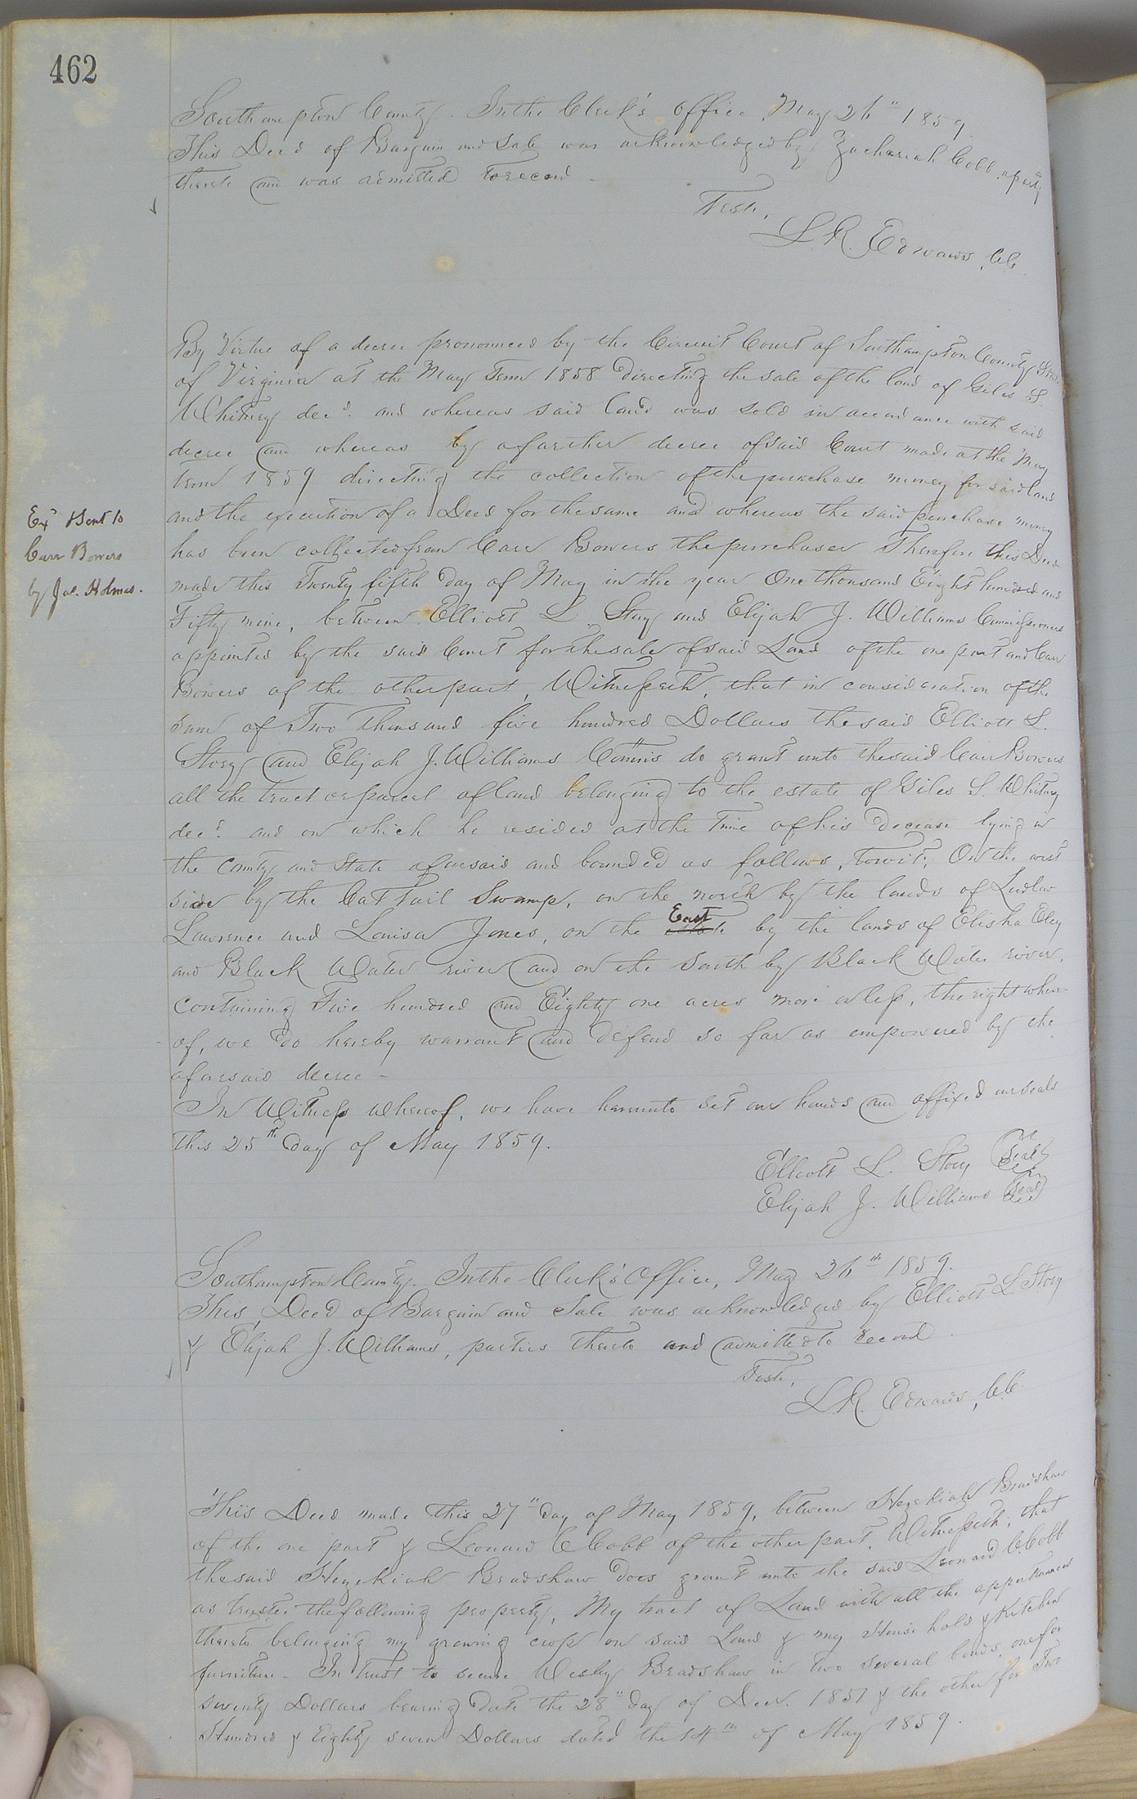 462
Southampton County. In the Clerk's office May 26th 1859.
This Deed of Bargain and Sale was acknowledged by Zachariah Cobb a party
thereto and was admitted to record
Teste,
L. R. Edwards, CC
By Virtue of a decree pronounced by the Circuit Court of Southampton County State
of Virginia at the May Term 1858 directing the sale of the land of Giles S.
Whitney decd. and whereas said land was sold in accordance with said
decree and whereas by a further decree of said Court made at the May
term 1859 directing the collection of the purchase money for said land
and the execution of a Deed for the same and whereas the said purchase money
has been collected from Carr Bowers the purchaser Therefore this Deed
made this Twenty fifth day of May in the year One thousand Eight hundred and
Fifty nine, between Elliott L Story and Elijah J. Williams Commissioners
appointed by the said Court for the sale of said Land of the one part and Carr
Bowers of the other part, Witnesseth, that in consideration of the
sum of Two thousand five hundred Dollars the said Elliott L.
Story and Elijah J. Williams Commis do grant unto the said Carr Bowers
all the tract or parcel of land belonging to the estate of Giles S. Whitney
decd. and on which he resided at the time of his decease lying in
the County and State aforesaid and bounded as follows, towit: On the west
side by the Cat Tail Swamp, on the north by the lands of Ludlow
Lawrence and Louisa Jones, on the East by the lands of Elisha Eley
and Black Water river and on the South by Black Water river,
containing Five hundred and Eighty one acres more or less, the right where-
of, we do hereby warrant and defend so far as empowered by the
aforesaid decree -
In Witness whereof, we have hereunto set our hands and affixed our seals
this 25th day of May 1859.
Elliott L. Story (Seal)
Elijah J. Williams (Seal)
Exd Sent to
Carr Bowers
by Jas. Holmes.
Southampton County. In the Clerk's Office, May 26th 1859.
This Deed of Bargain and Sale was acknowledged by Elliott L Story
& Elijah J. Williams, parties thereto and admitted to record
Teste,
L. R. Edwards, CC
This Deed made this 27th day of May 1859, between Hezekiah Bradshaw
of the one part & Leonard C Cobb of the other part, Witnesseth, that
the said Hezekiah Bradshaw does grant unto the said Leonard C. Cobb
as trustee the following property, My tract of Land with all the appurtenances
thereto belonging my growing crop on said Land & my House hold & Kitchen
furniture - In Trust to secure Wesley Bradshaw in two several bonds, one for
seventy Dollars bearing date the 28th day of Decr. 1857 & the other for Two
Hundred & Eighty seven Dollars dated the 14th of May 1859.